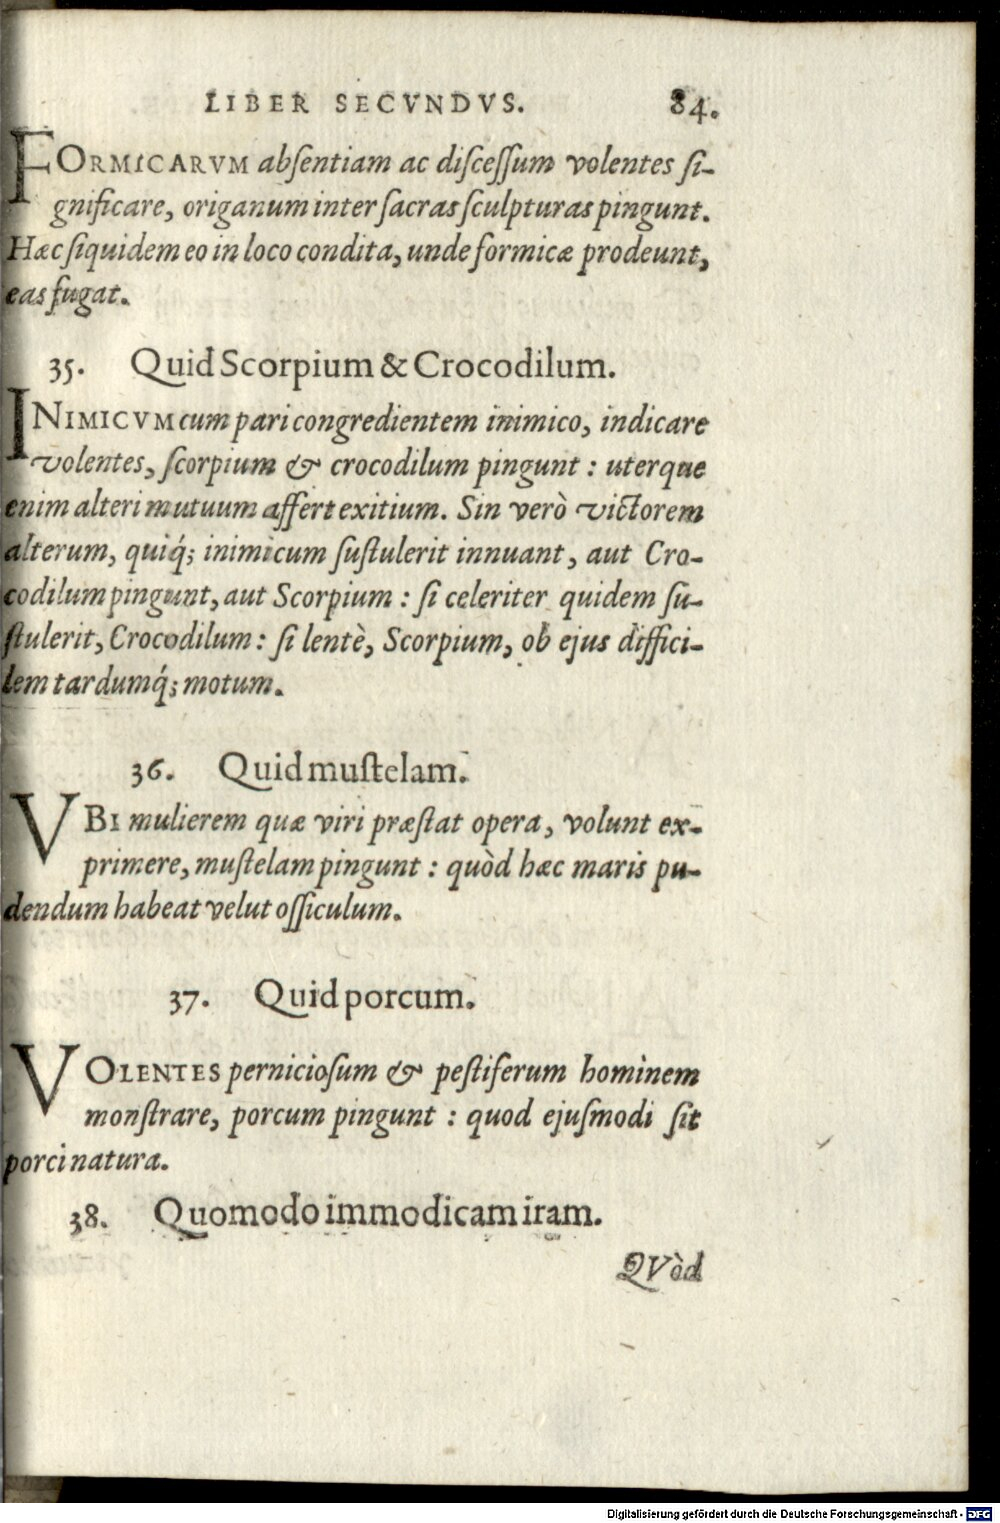 LIBER SECVNDVS. 84.
FORMICARVM absentiam ac discessum volentes si-
gnificare, origanum inter sacras sculpturas pingunt.
Hæc siquidem eo in loco condita, unde formicæ prodeunt,
eas fugat.
35. Quid Scorpium & Crocodilum.
INIMICVM cum pari congredientem inimico, indicare
volentes, scorpium & crocodilum pingunt : uterque
enim alteri mutuum affert exitium. Sin verò victorem
alterum, quiq́; inimicum sustulerit innuant, aut Cro-
codilum pingunt, aut Scorpium : si celeriter quidem su-
stulerit, Crocodilum : si lentè, Scorpium, ob ejus diffici-
lem tardumq́; motum.
36. Quid mustelam.
VBI mulierem quæ viri præstat opera, volunt ex-
primere, mustelam pingunt : quòd hæc maris pu-
dendum habeat velut ossiculum.
37. Quid porcum.
VOLENTES perniciosum & pestiferum hominem
monstrare, porcum pingunt : quod ejusmodi sit
porci natura.
38. Quomodo immodicam iram.
QVòd
Digitalisierung gefördert durch die Deutsche Forschungsgemeinschaft - DFG